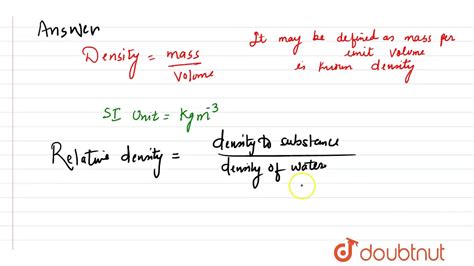 Answer
Density = mass / volume
It may be defined as mass per
unit volume
is known density
SI Unit = Kgm⁻³
Relative density = density to substance / density of water
doubtnut